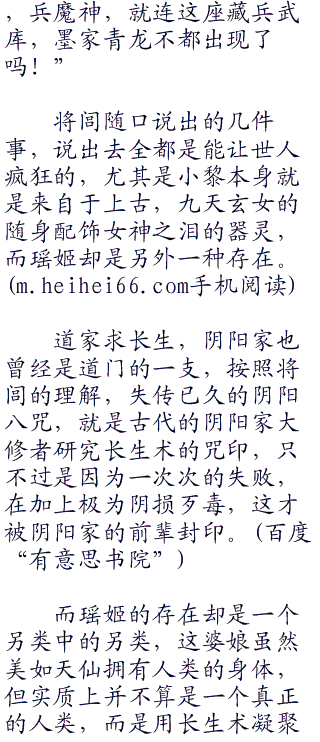 ，兵魔神，就连这座藏兵武
库，墨家青龙不都出现了
吗！”
将闾随口说出的几件
事，说出去全都是能让世人
疯狂的，尤其是小黎本身就
是来自于上古，九天玄女的
随身配饰女神之泪的器灵，
而瑶姬却是另外一种存在。
(m.heihei66.com手机阅读)
道家求长生，阴阳家也
曾经是道门的一支，按照将
闾的理解，失传已久的阴阳
八咒，就是古代的阴阳家大
修者研究长生术的咒印，只
不过是因为一次次的失败，
在加上极为阴损歹毒，这才
被阴阳家的前辈封印。(百度
“有意思书院”)
而瑶姬的存在却是一个
另类中的另类，这婆娘虽然
美如天仙拥有人类的身体，
但实质上并不算是一个真正
的人类，而是用长生术凝聚